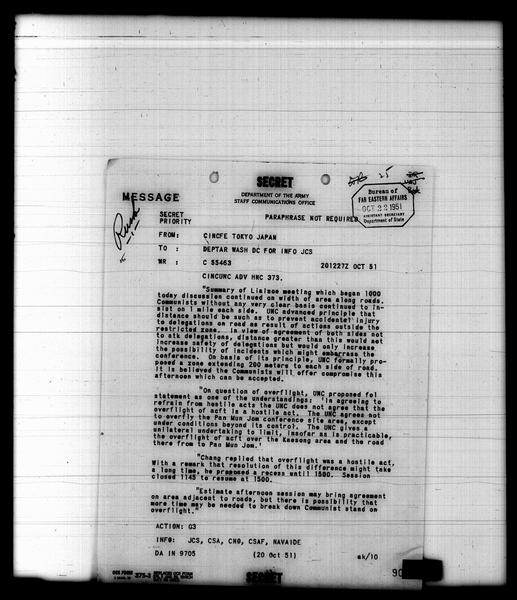 SECRET
DEPARTMENT OF THE ARMY
STAFF COMMUNICATIONS OFFICE
25
MESSAGE
Rush
SECRET
PRIORITY
PARAPHRASE NOT REQUIRED
Bureau of
FAR EASTERN AFFAIRS
OCT 22 1951
ASSISTANT SECRETARY
Department of State
FROM: CINCFE TOKYO JAPAN
TO : DEPTAR WASH DC FOR INFO JCS
NR : C 55463 201227Z OCT 51
CINCUNC ADV HNC 373.
"Summary of Liaison meeting which began 1000
today discussion continued on width of area along roads.
Communists without any very clear basis continued to in-
sist on 1 mile each side. UNC advanced principle that
distance should be such as to prevent accidental injury
to delegations on road as result of actions outside the
restricted zone. In view of agreement of both sides not
to atk delegations, distance greater than this would not
increase safety of delegations but would only increase
the possibility of incidents which might embarrass the
conference. On basis of its principle, UNC formally pro-
posed a zone extending 200 meters to each side of road.
It is believed the Communists will offer compromise this
afternoon which can be accepted.
"On question of overflight, UNC proposed fol
statement as one of the understandings: 'In agreeing to
refrain from hostile acts the UNC does not agree that the
overflight of acft is a hostile act. The UNC agrees not
to overfly the Pan Mun Jom conference site area, except
under conditions beyond its control. The UNC gives a
unilateral undertaking to limit, insofar as is practicable,
the overflight of acft over the Kaesong area and the road
there from to Pan Mun Jom.'
"Chang replied that overflight was a hostile act.
With a remark that resolution of this difference might take
a long time, he proposed a recess until 1500. Session
closed 1145 to resume at 1500.
"Estimate afternoon session may bring agreement
on area adjacent to roads, but there is possibility that
more time may be needed to break down Communist stand on
overflight."
ACTION: G3
INFO: JCS, CSA, CNO, CSAF, NAVAIDE
DA IN 9705 (20 Oct 51) ek/10
OCS FORM 375-3
SECRET
90